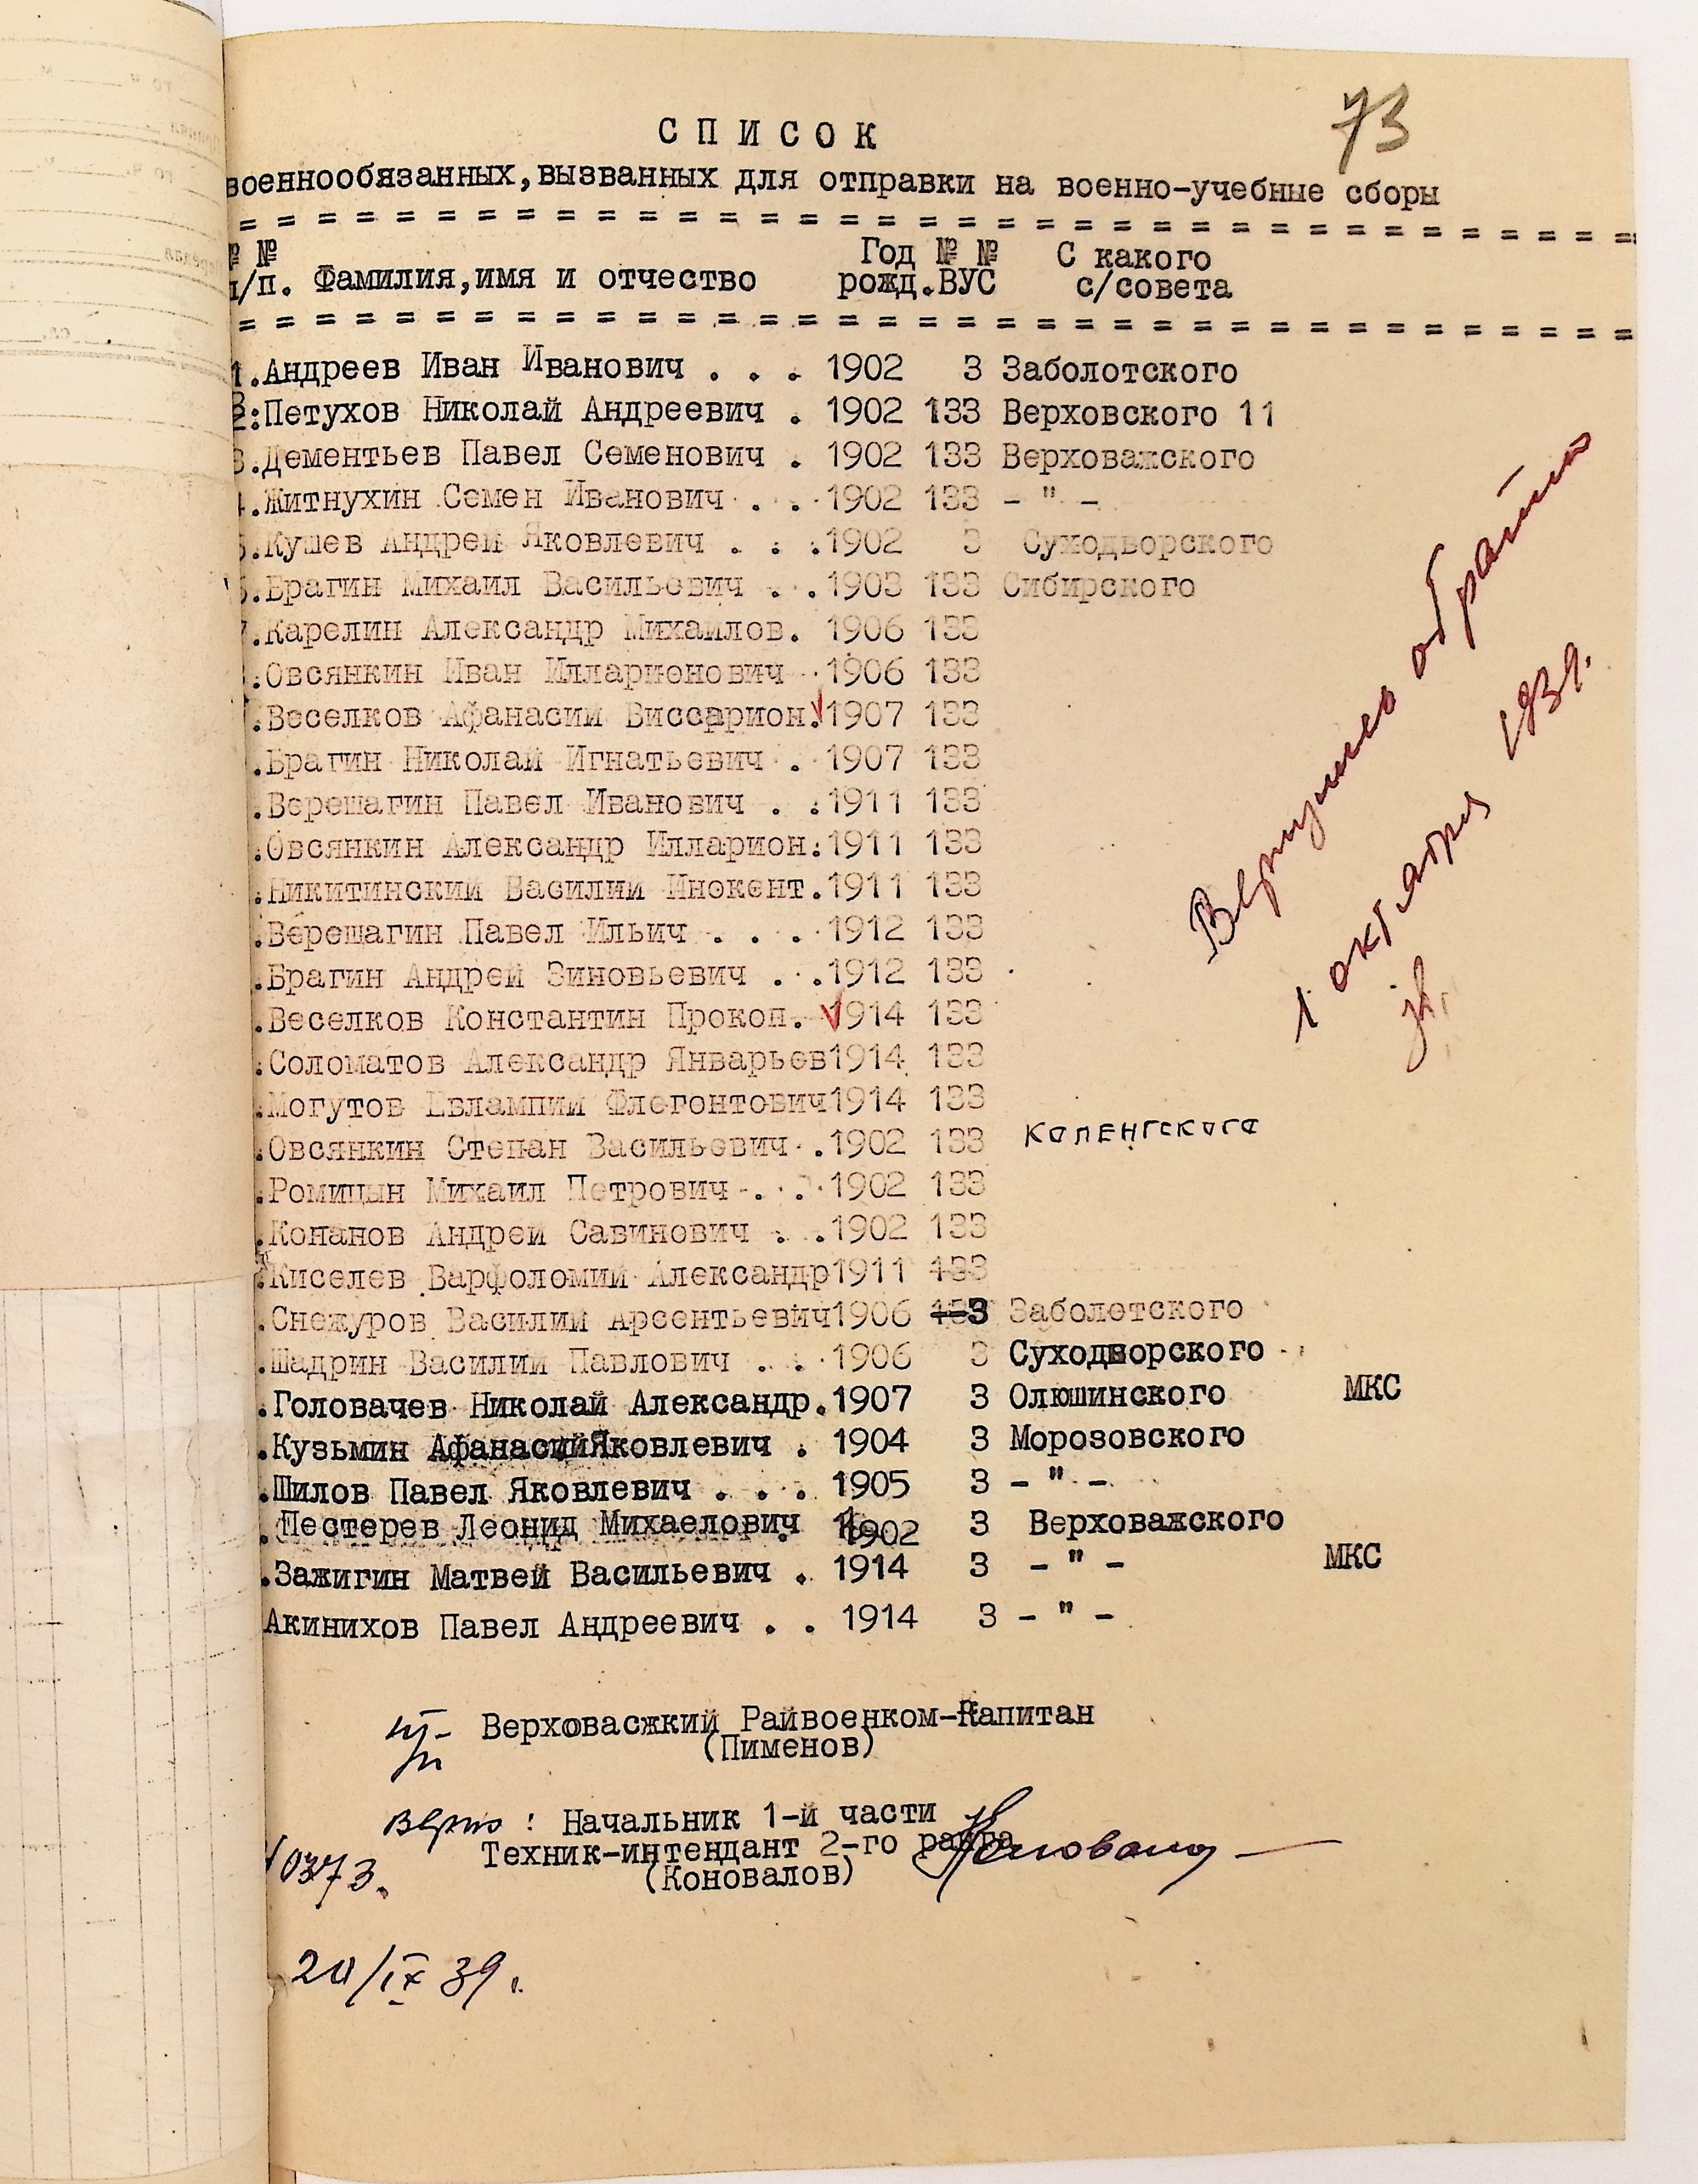 73
СПИСОК
военнообязанных, вызванных для отправки на военно-учебные сборы
= = = = = = = = = = = = = = = = = = = = = = = = = = = = = = = = = = =
№ № Год № № С какого
п/п. Фамилия, имя и отчество рожд. ВУС с/совета
= = = = = = = = = = = = = = = = = = = = = = = = = = = = = = = = = = =
1. Андреев Иван Иванович . . . 1902 3 Заболотского
2: Петухов Николай Андреевич . 1902 133 Верховского 11
3. Дементьев Павел Семенович . 1902 133 Верховажского
4. Житнухин Семен Иванович . . . 1902 133 - " -
5. Кушев Андрей Яковлевич . . . 1902 3 Суходворского
6. Брагин Михаил Васильевич . . 1903 133 Сибирского
7. Карелин Александр Михайлов. 1906 133
. Овсянкин Иван Илларионович . 1906 133
. Веселков Афанасий Виссарион. 1907 133
. Брагин Николай Игнатьевич . 1907 133
. Верещагин Павел Иванович . . 1911 133
. Овсянкин Александр Илларион. 1911 133
. Никитинский Василий Инокент. 1911 133
. Верещагин Павел Ильич . . . 1912 133
. Брагин Андрей Зиновьевич . . 1912 133
. Веселков Константин Прокоп. 1914 133
. Соломатов Александр Январьев 1914 133
. Могутов Евлампий Флегонтович 1914 133
. Овсянкин Степан Васильевич . 1902 133 Коленгского
. Ромицын Михаил Петрович . . 1902 133
. Конанов Андрей Савинович . . 1902 133
. Киселев Варфоломий Александр 1911 133
. Снежуров Василий Арсентьевич 1906 3 Заболотского
. Шадрин Василий Павлович . . 1906 3 Суходворского
. Головачев Николай Александр. 1907 3 Олюшинского МКС
. Кузьмин Афанасий Яковлевич . 1904 3 Морозовского
. Шилов Павел Яковлевич . . . 1905 3 - " -
. Пестерев Леонид Михаелович 1902 3 Верховажского
. Зажигин Матвей Васильевич . 1914 3 - " - МКС
Акинихов Павел Андреевич . . 1914 3 - " -
Вернулись обратно
1 октября 1939.
Верховасжкий Райвоенком-Капитан
(Пименов)
Верно: Начальник 1-й части
Техник-интендант 2-го ранга Коновалов
(Коновалов)
0373.
20/IX 39.